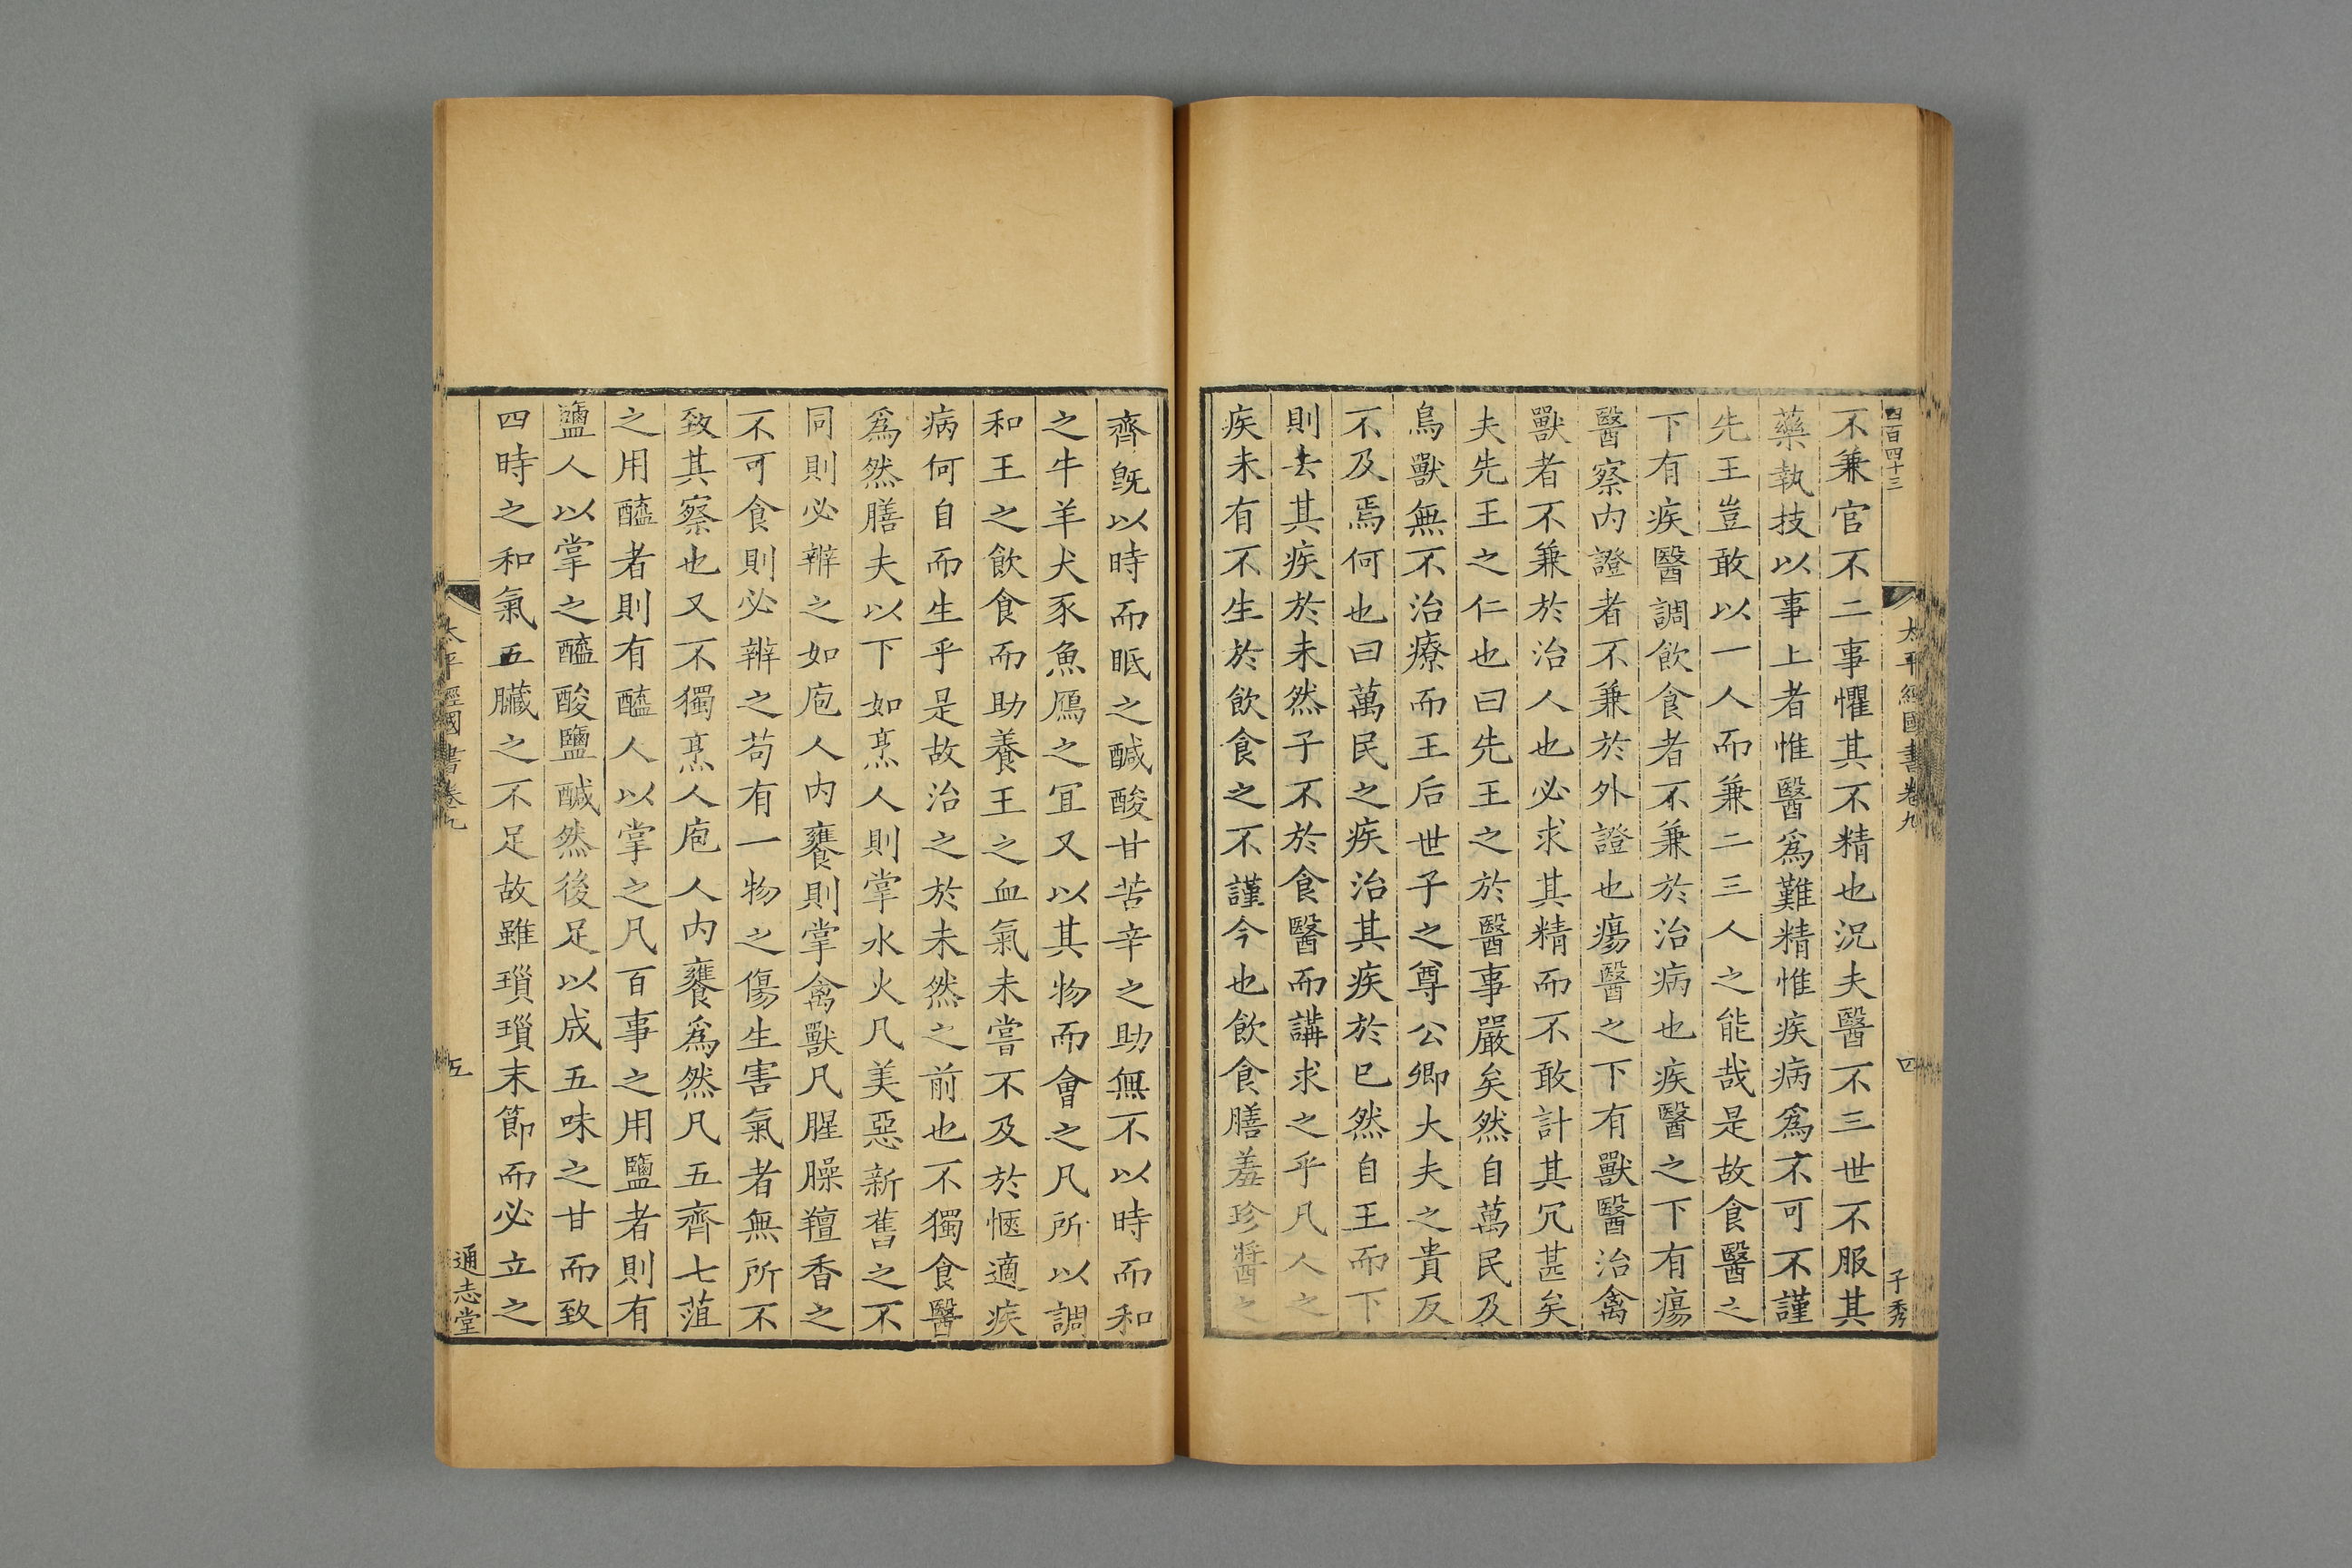 四百四十三
太平經國書卷九
四
子秀
不兼官不二事懼其不精也況夫醫不三世不服其
藥執技以事上者惟醫爲難精惟疾病爲不可不謹
先王豈敢以一人而兼二三人之能哉是故食醫之
下有疾醫調飲食者不兼於治病也疾醫之下有瘍
醫察内證者不兼於外證也瘍醫之下有獸醫治禽
獸者不兼於治人也必求其精而不敢計其冗甚矣
夫先王之仁也曰先王之於醫事嚴矣然自萬民及
鳥獸無不治療而王后世子之尊公卿大夫之貴反
不及焉何也曰萬民之疾治其疾於已然自王而下
則去其疾於未然子不於食醫而講求之乎凡人之
疾未有不生於飲食之不謹今也飲食膳羞珍醬之
齊旣以時而眂之醎酸甘苦辛之助無不以時而和
之牛羊犬豕魚鴈之宜又以其物而會之凡所以調
和王之飲食而助養王之血氣未嘗不及於愜適疾
病何自而生乎是故治之於未然之前也不獨食醫
爲然膳夫以下如烹人則掌水火凡美惡新舊之不
同則必辨之如庖人内饔則掌禽獸凡腥臊羶香之
不可食則必辨之苟有一物之傷生害氣者無所不
致其察也又不獨烹人庖人内饔爲然凡五齊七菹
之用醯者則有醯人以掌之凡百事之用鹽者則有
鹽人以掌之醯酸鹽醎然後足以成五味之甘而致
四時之和氣五臟之不足故雖瑣瑣末節而必立之
太平經國書卷九
五
通志堂